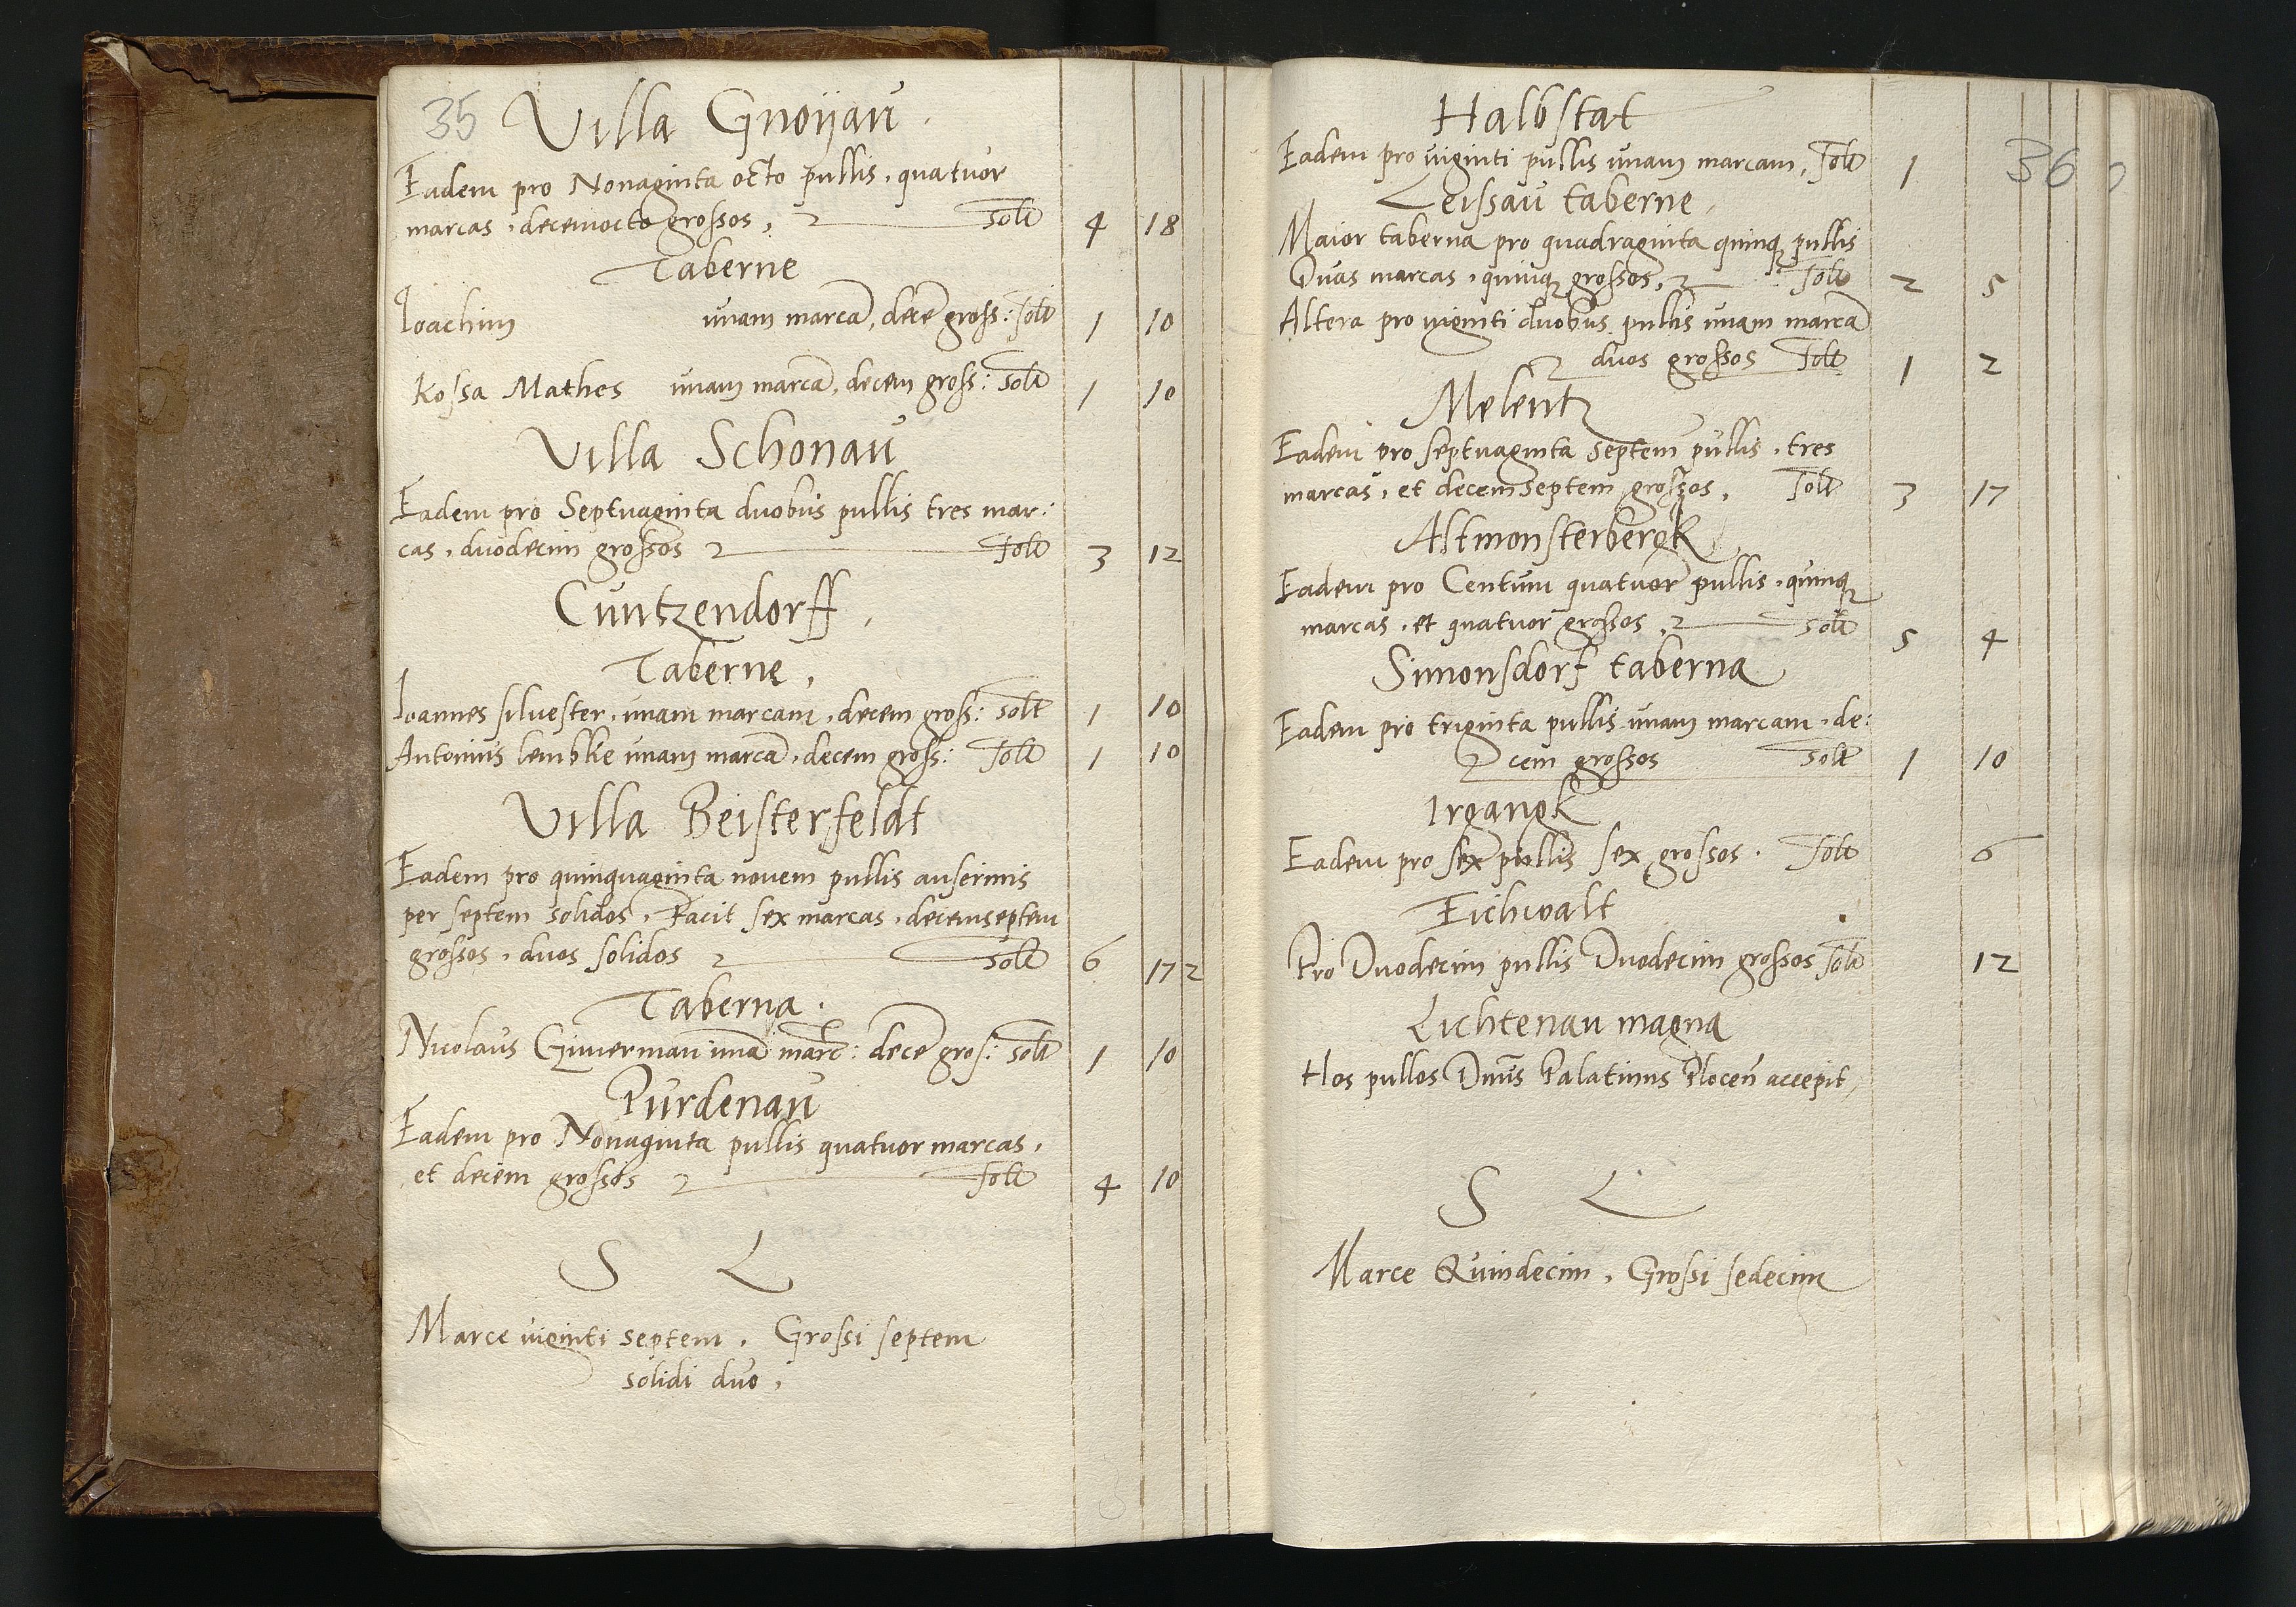 35 Villa Gnoÿau.
Eadem pro Nonaginta octo pullis, quatuor
marcas, decemocto grossos, solt 4 18
Taberne
Ioachim unam marcā, decē gross: solt 1 10
Kossa Mathes unam marcā, decem gross: solt 1 10
Villa Schonau
Eadem pro Septuaginta duobus pullis tres mar:
cas, duodecim grossos solt 3 12
Cuntzendorff,
Taberne,
Ioannes siluester, unam marcam, decem gross: solt 1 10
Antonius lembkie unam marcā, decem gross: solt 1 10
Villa Beisterfeldt
Eadem pro quinquaginta nouem pullis anserinis
per septem solidos, Facit sex marcas, decemseptem
grossos, duos solidos solt 6 17 2
Taberna.
Nicolaus unā marc: decē gros: solt 1 10
Purdenau
Eadem pro Nonaginta pullis quatuor marcas,
et decem grossos solt 4 10
S L
Marce viginti septem, Grossi septem
solidi duo,
Halbstat
Eadem pro viginti pullis unam marcam, solt 1 36
Leissau taberne,
Maior taberna pro quadraginta quinqꝫ pullis
Duas marcas, quinqꝫ grossos, solt 2 5
Altera pro viginti duobus pullis unam marcā
duos grossos solt 1 2
Melentz
Eadem pro septuaginta septem pullis, tres
marcas, et decemseptem grossos, solt 3 17
Altmonsterbergk
Eadem pro Centum quatuor pullis, quinqꝫ
marcas, et quatuor grossos, solt 5 4
Simonsdorf taberna
Eadem pro triginta pullis unam marcam, de:
cem grossos solt 1 10
Irgangk
Eadem pro sex pullis sex grossos. solt 6
Eichwalt
Pro Duodecim pullis Duodecim grossos solt 12
Lichtenau magna
Hos pullos Dn̄us Palatinus Plocen̄ accepit,
S L
Marce Quindecim, Grossi sedecim